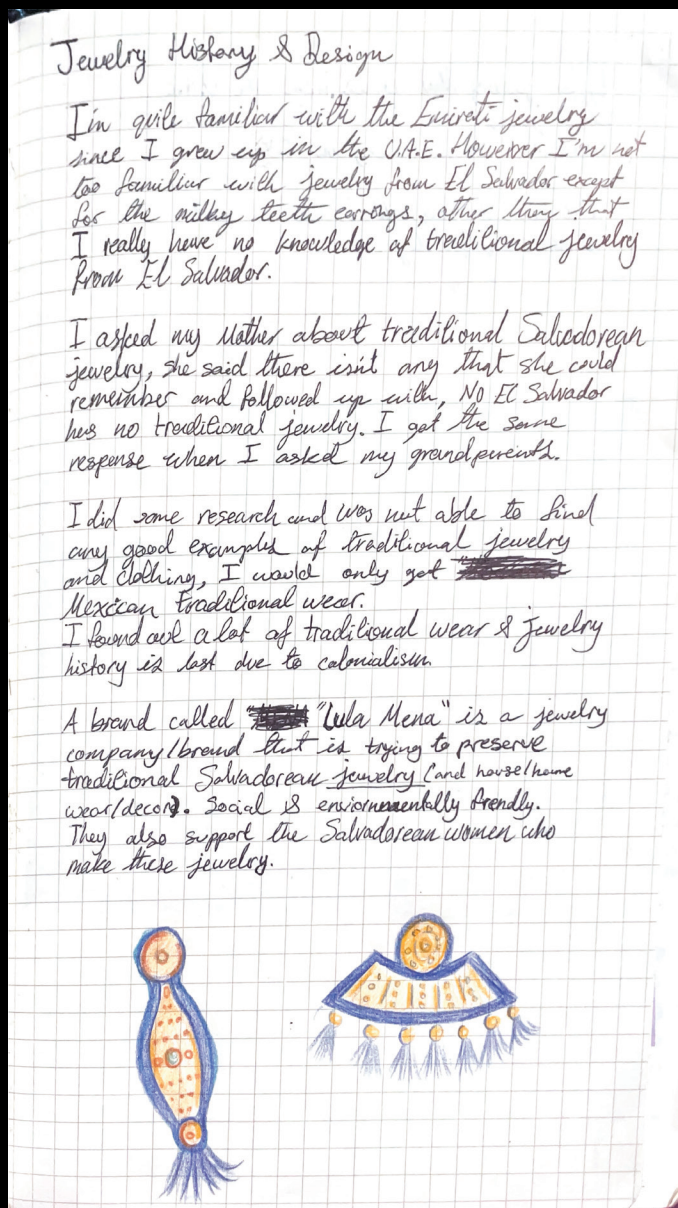 Jewelry History & Design
I'm quite familiar with the Emirati jewelry
since I grew up in the U.A.E. However I'm not
too familiar with jewelry from El Salvador except
for the milky teeth earrings, other than that
I really have no knowledge of traditional jewelry
from El Salvador.
I asked my Mother about traditional Salvadorean
jewelry, she said there isn't any that she could
remember and followed up with, NO El Salvador
has no traditional jewelry. I got the same
response when I asked my grandparents.
I did some research and was not able to find
any good examples of traditional jewelry
and clothing, I would only get
Mexican traditional wear.
I found out a lot of traditional wear & jewelry
history is lost due to colonialism.
A brand called "Lula Mena" is a jewelry
company/brand that is trying to preserve
traditional Salvadorean jewelry (and house/home
wear/decor). Social & enviornmentally frendly.
They also support the Salvadorean women who
make these jewelry.